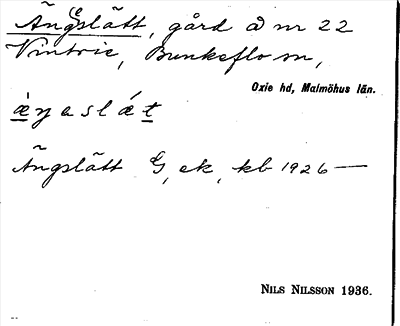 Äng(e)slätt, gård å nr 22
Vintrie, Bunkeflo sn,
Oxie hd, Malmöhus län.
æŋaslæt
Ängslätt G, ek, kb 1926—
NILS NILSSON 1936.